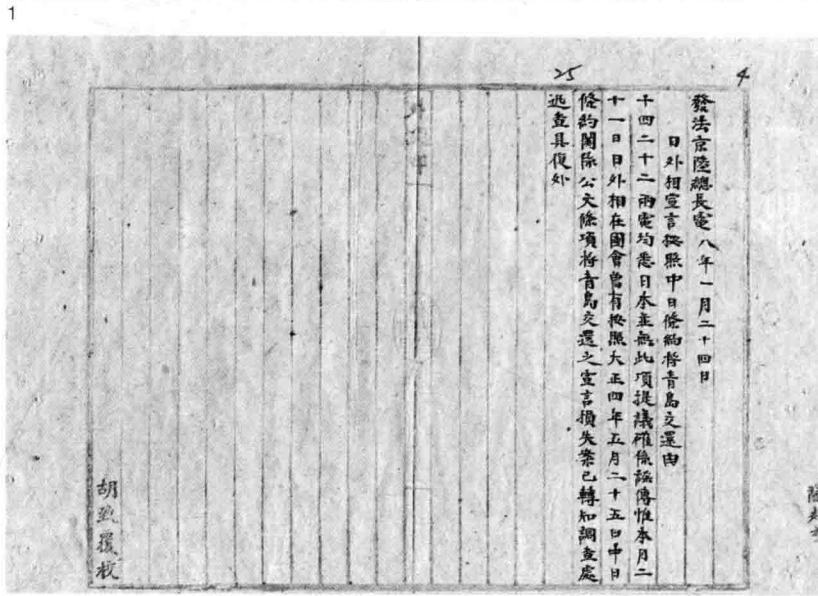 1
25
4
發法京陸總長電 八年一月二十四日
日外相宣言按照中日條約將青島交還由
十四二十二兩電均悉日本並無此項提議確係謠傳惟本月二
十一日日外相在國會曾有按照大正四年五月二十五日中日
條約關係公文條項將青島交還之宣言損失案已轉知調查處
迅查具復外
胡 覆校